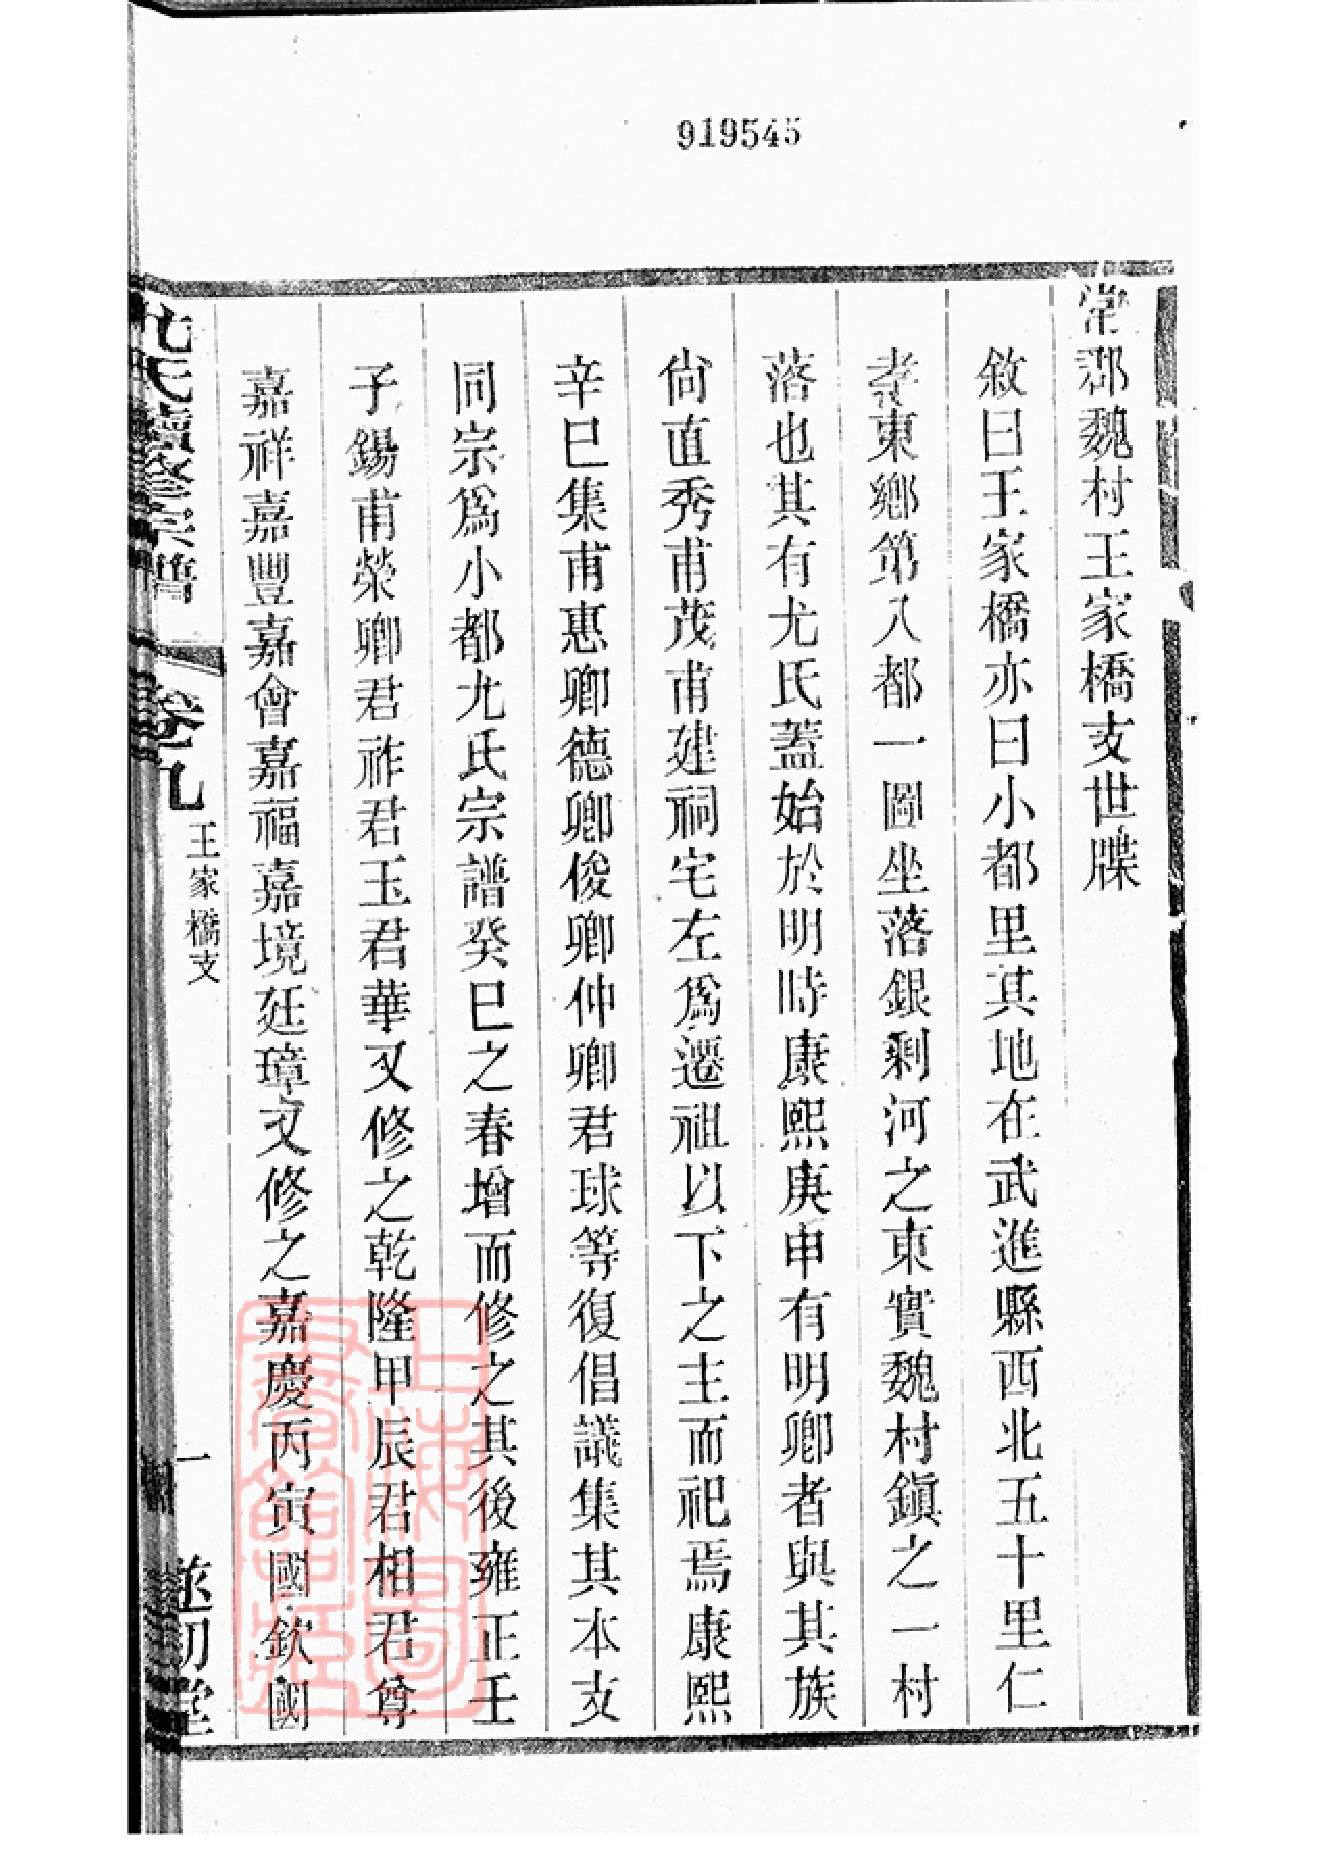 919545
常郡魏村王家橋支世牒
敘曰王家橋亦曰小都里其地在武進縣西北五十里仁
孝東鄉第八都一圖坐落銀剩河之東實魏村鎮之一村
落也其有尤氏蓋始於明時康熙庚申有明卿者與其族
尙直秀甫茂甫建祠宅左爲遷祖以下之主而祀焉康熙
辛巳集甫惠卿德卿俊卿仲卿君球等復倡議集其本支
同宗爲小都尤氏宗譜癸巳之春增而修之其後雍正壬
子錫甫榮卿君祚君玉君華又修之乾隆甲辰君相君尊
嘉祥嘉豐嘉會嘉福嘉境廷璋又修之嘉慶丙寅國欽國
尤氏續修宗譜
卷九
王家橋支
一
遂初堂
上海圖書館藏